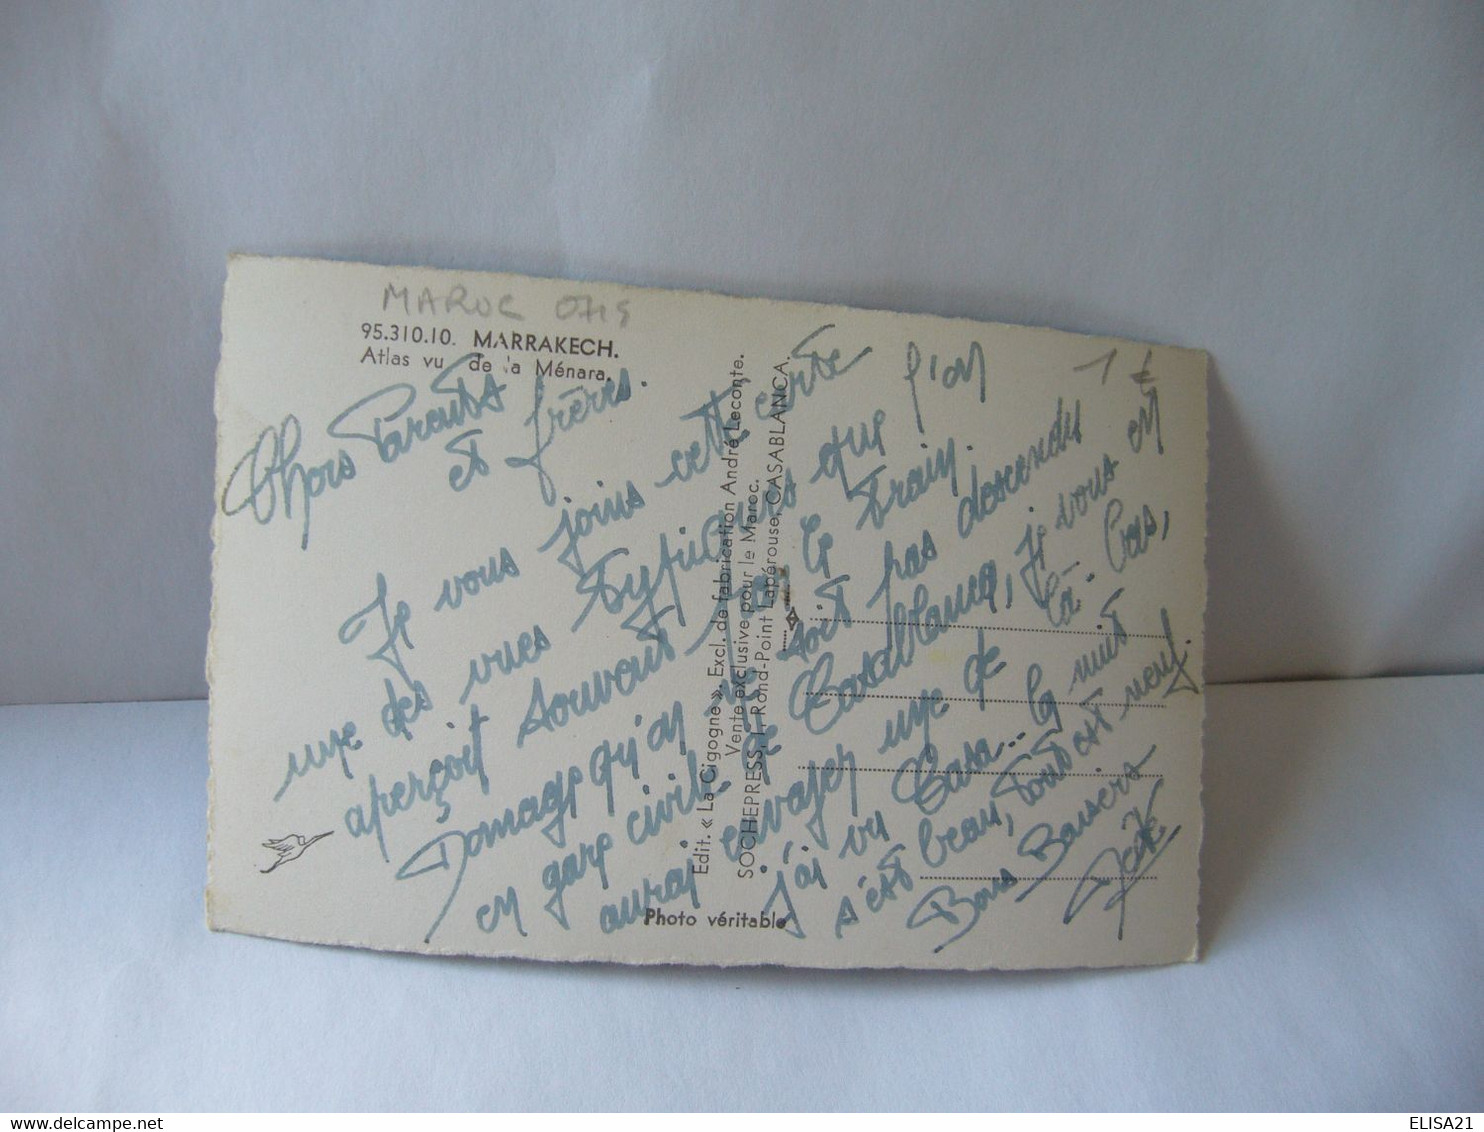 MAROC 0715
1 €
95.310.10. MARRAKECH.
Atlas vu de la Ménara.
Chers Parents
et frères.
Je vous joins cette carte
une des vues typiques que l'on
aperçoit souvent par le train.
Domage qu'on ne soit pas descendu
en gare civile de Casablanca, je vous en
aurai envoyer une de là-bas,
j'ai vu Casa... la nuit
s'est beau, tout est neuf.
Bons Baisers
Edit. « La Cigogne ». Excl. de fabrication André Leconte.
Vente exclusive pour le Maroc.
SOCHEPRESS, 1, Rond-Point Lapérouse, CASABLANCA.
Photo véritable
delcampe.net
ELISA21